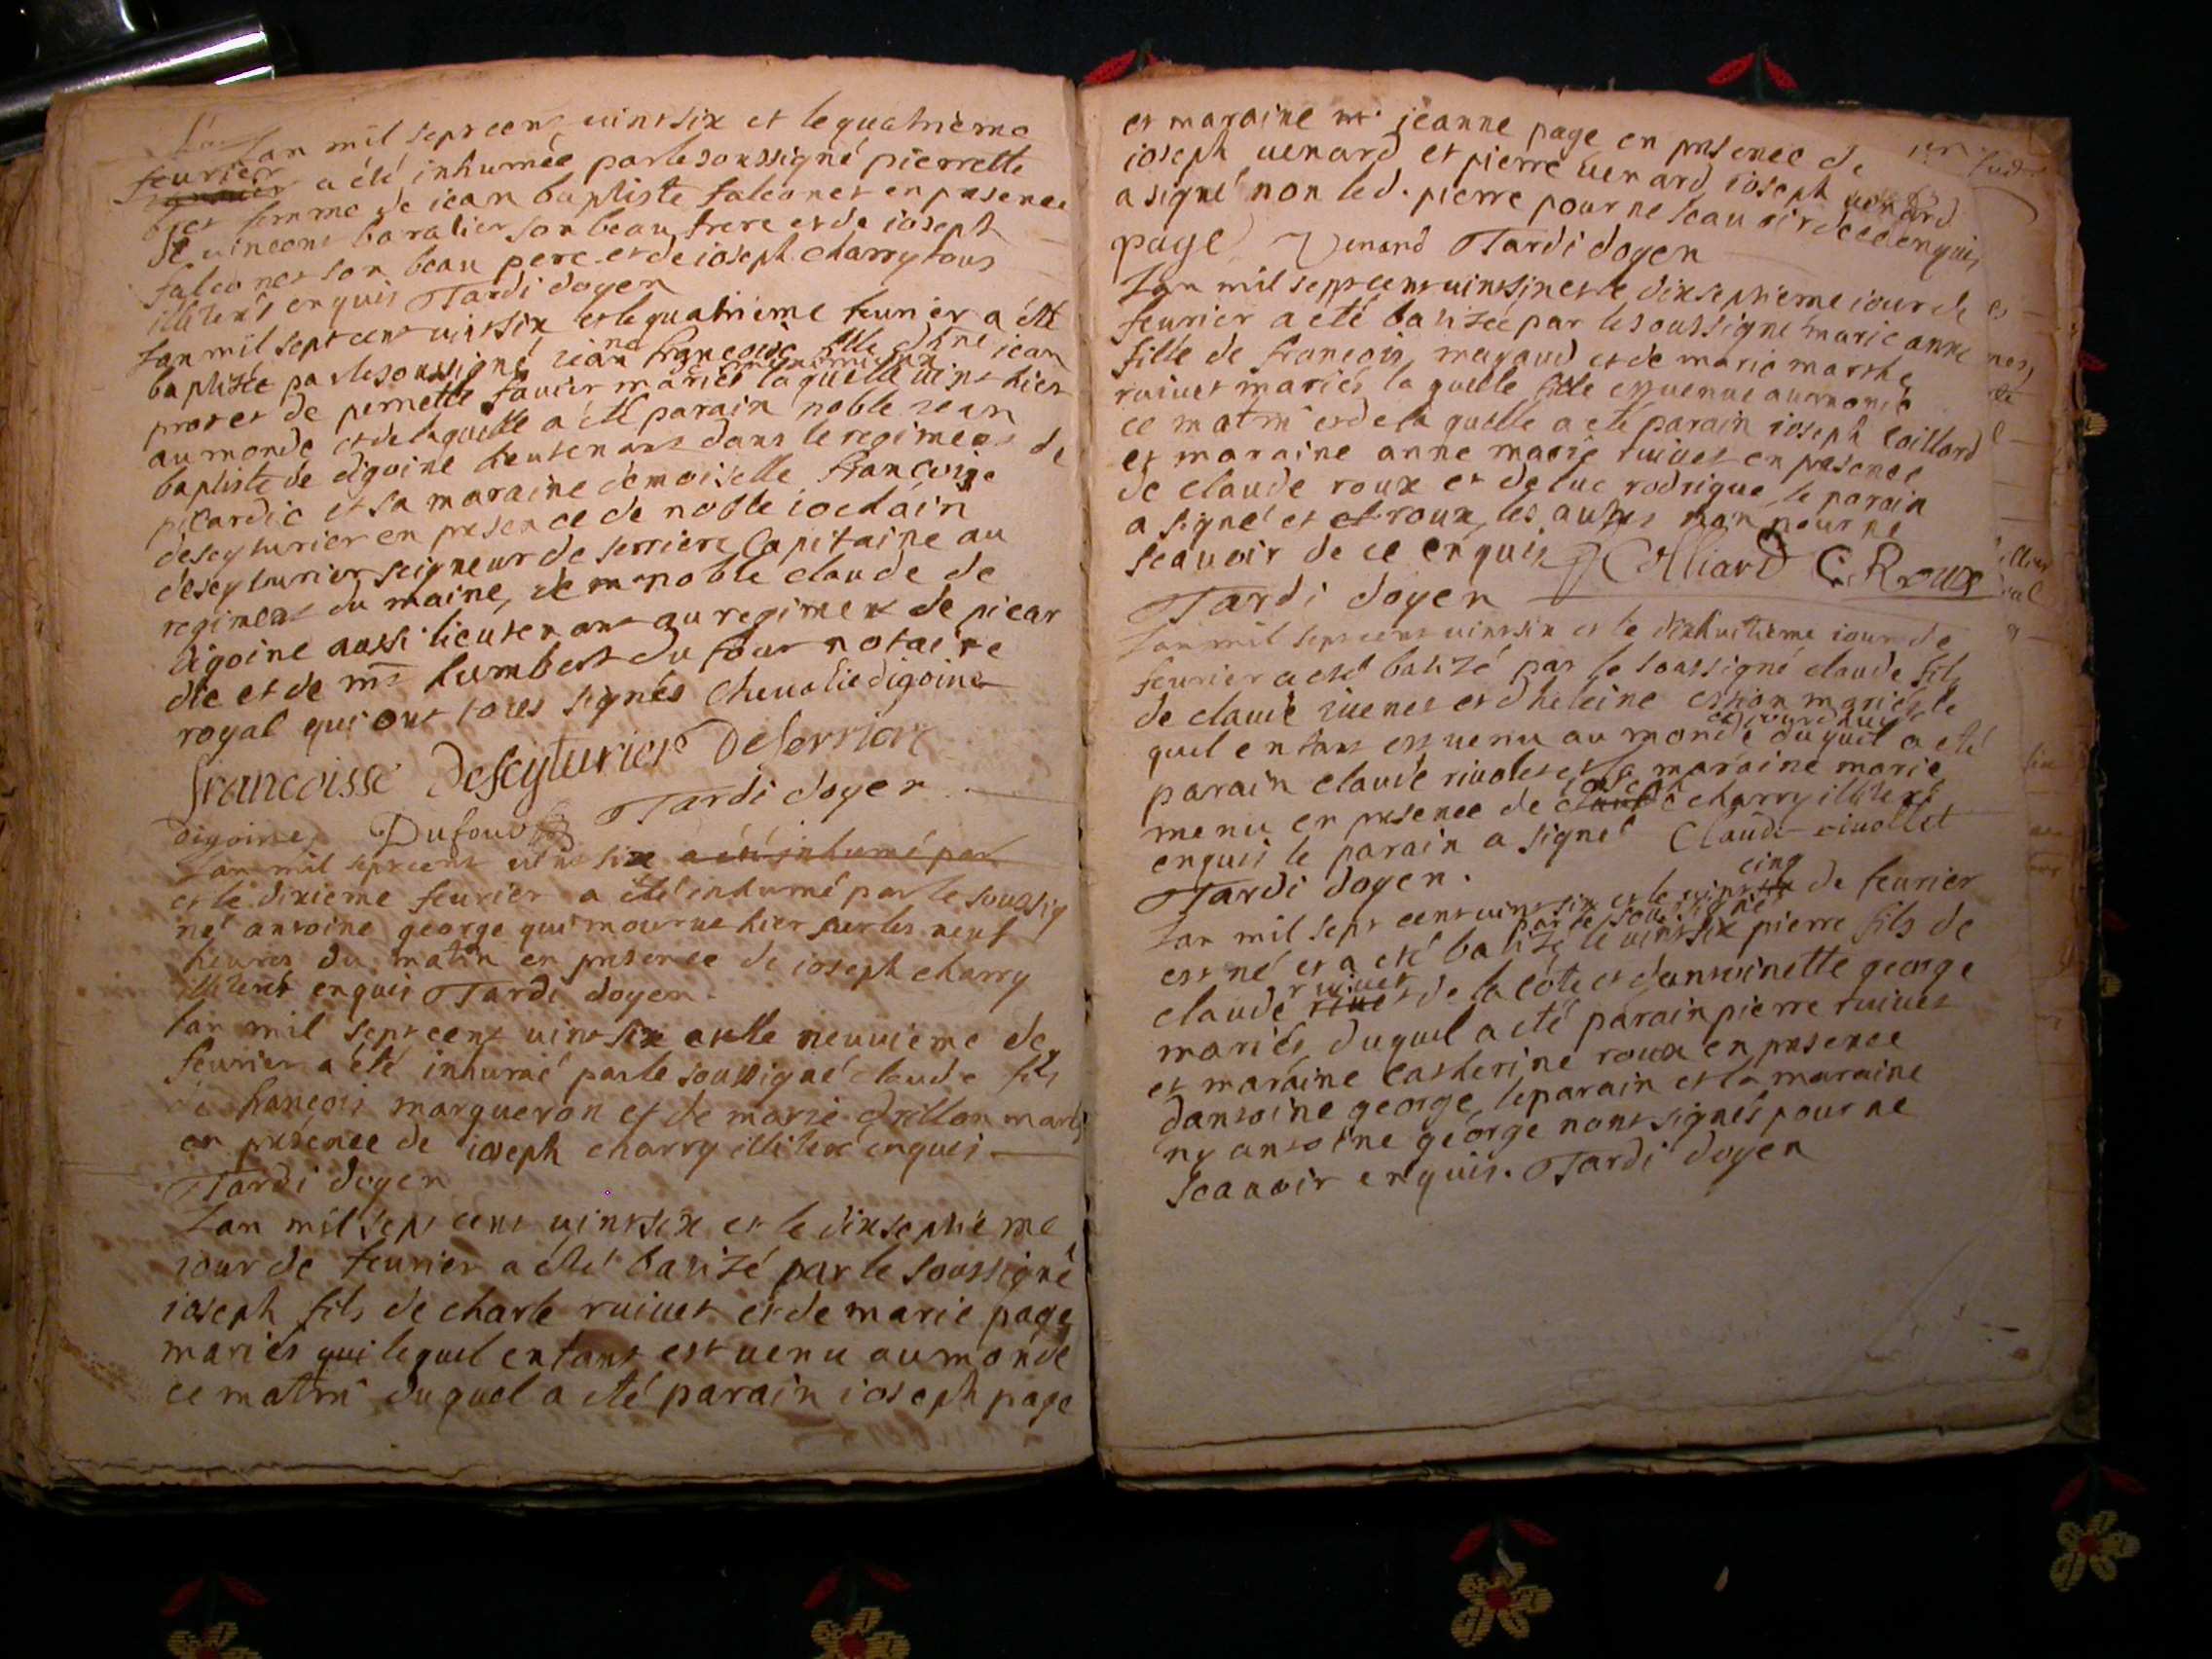 Lan mil sept cent vint six et le quatrieme
feurier a été inhumée par le soussigné pierrette
femme de iean baptiste falconet en presence
de vincent baralier son beau frere et de ioseph
falconet son beau pere et de ioseph charry tous
illiterés enquis Tardi doyen
Lan mil sept cent vint six et le quatrieme feurier a été
baptisée par le soussigné ieanne francoise fille dhne iean
et de pernette mariés laquelle vint hier
au monde et de laquelle a été parain noble iean
baptiste de digoine lieutenant dans le regiment de
picardie et sa maraine demoiselle francoise
descyturier en presence de noble
descyturier seigneur de serriere Capitaine au
regiment du maine, de noble claude de
digoine aussi lieutenant au regiment de picar
die et de mre humbert du four notaire
royal qui ont tous signés chevalie digoine
francoisse Descyturier Deserriere
digoine Dufour Tardi doyen
Lan mil sept cent vint six a été inhumé par
et le dixieme feurier a été inhumé par le soussig
né antoine george qui mourut hier sur les neuf
heures du matin en presence de ioseph charry
illiteré enquis Tardi doyen
Lan mil sept cent vint six et le neuvieme de
feurier a été inhumé par le soussigné claude fils
de francois margueron et de marie mariés
en presence de ioseph charry illiteré enquis
Tardi doyen
Lan mil sept cent vint six et le dixseptieme
iour de feurier a été batizé par le soussigné
ioseph fils de charle ruivet et de marie page
mariés qui lequel enfant est venu au monde
ce matin duquel a été parain ioseph page
et maraine jeanne page en presence de
ioseph venard et pierre venard, ioseph venard
a signé non led. pierre pour ne scauoir de ce enquis
page Venard Tardi doyen
Lan mil sept cent vint six et le dixseptieme iour de
feurier a été batizée par le soussigné marie anne
fille de francois et de marie marthe
ruivet mariés laquelle fille est venue au monde
ce matin et de la quelle a été parain ioseph
et maraine anne marie ruivet en presence
de claude roux et de luc rodrigue, le parain
a signé et roux, les autres non pour ne
scauoir de ce enquis J Colliard C Roux
Tardi doyen
Lan mil sept cent vint six et le dixhuitieme iour de
feurier a été batizé par le soussigné claude fils
de claude et dheleine mariés le
quel enfant est venu au monde aujourdhuy duquel a été
parain claude rivolet et sa maraine marie
menu en presence de ioseph charry illiteré
enquis le parain a signé Claude rivollet
Tardi doyen.
Lan mil sept cent vint six et le vint cinq de feurier
est né et a été batizé par le soussigné le vint six pierre fils de
claude ruivet de la cote et dantoinette george
mariés, duquel a été parain pierre ruivet
et maraine catherine roux en presence
dantoine george, le parain et la maraine
ny antoine george nont signés pour ne
scauoir enquis. Tardi doyen